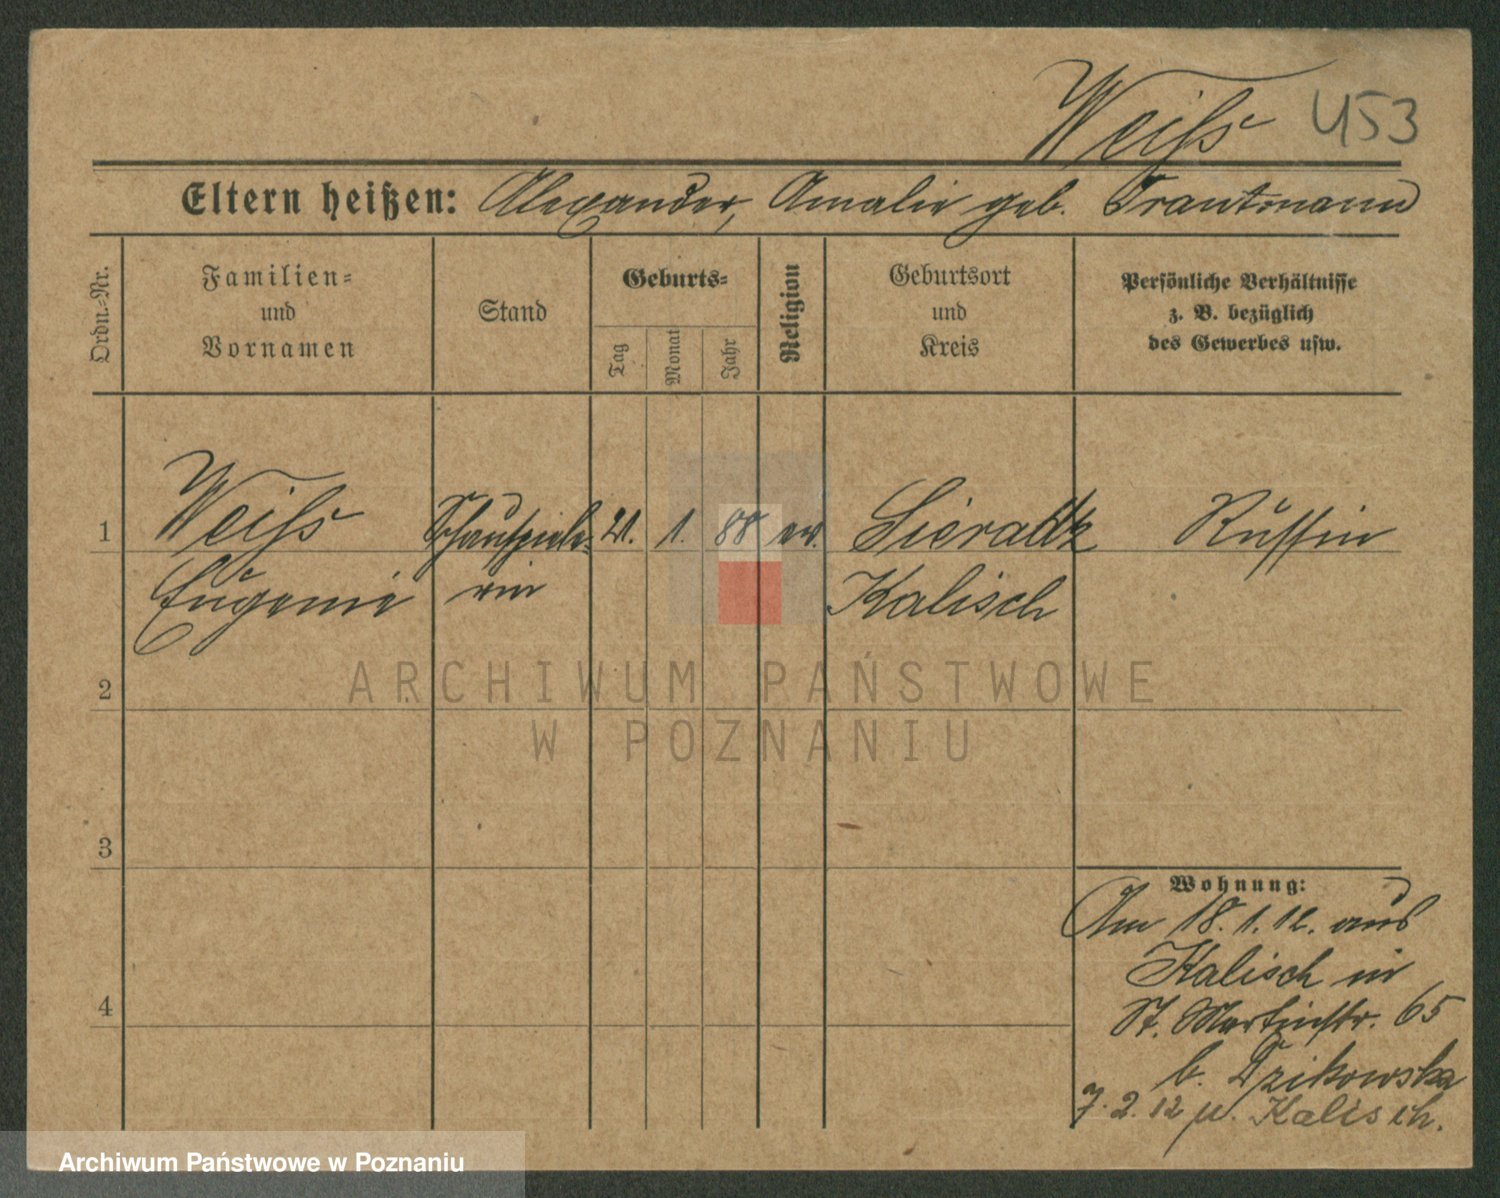 Weiß 453
Eltern heißen: Alexander, Amalie geb. Trautmann
Ordn.-Nr.
Familien-
und
Vornamen
Stand
Geburts-
Tag
Monat
Jahr
Religion
Geburtsort
und
Kreis
Persönliche Verhältnisse
z. B. bezüglich
des Gewerbes usw.
1 Weiß Schauspiele- 21. 1. 88 ev. Sieradz Russin
Eugenie rin Kalisch
2
3
4
Wohnung:
Am 18.1.12. aus
Kalisch in
St. Martinstr. 65
b. Dzikowska
7.2.12 n. Kalisch.
ARCHIWUM PAŃSTWOWE
W POZNANIU
Archiwum Państwowe w Poznaniu